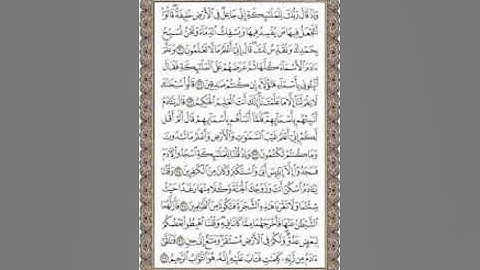 وَإِذْ قَالَ رَبُّكَ لِلْمَلَٰٓئِكَةِ إِنِّى جَاعِلٌ فِى ٱلْأَرْضِ خَلِيفَةً قَالُوٓا۟
أَتَجْعَلُ فِيهَا مَن يُفْسِدُ فِيهَا وَيَسْفِكُ ٱلدِّمَآءَ وَنَحْنُ نُسَبِّحُ
بِحَمْدِكَ وَنُقَدِّسُ لَكَ قَالَ إِنِّىٓ أَعْلَمُ مَا لَا تَعْلَمُونَ ٣٠ وَعَلَّمَ
ءَادَمَ ٱلْأَسْمَآءَ كُلَّهَا ثُمَّ عَرَضَهُمْ عَلَى ٱلْمَلَٰٓئِكَةِ فَقَالَ
أَنۢبِـُٔونِى بِأَسْمَآءِ هَٰٓؤُلَآءِ إِن كُنتُمْ صَٰدِقِينَ ٣١ قَالُوا۟ سُبْحَٰنَكَ
لَا عِلْمَ لَنَآ إِلَّا مَا عَلَّمْتَنَآ إِنَّكَ أَنتَ ٱلْعَلِيمُ ٱلْحَكِيمُ ٣٢ قَالَ يَٰٓـَٔادَمُ
أَنۢبِئْهُم بِأَسْمَآئِهِمْ فَلَمَّآ أَنۢبَأَهُم بِأَسْمَآئِهِمْ قَالَ أَلَمْ أَقُل
لَّكُمْ إِنِّىٓ أَعْلَمُ غَيْبَ ٱلسَّمَٰوَٰتِ وَٱلْأَرْضِ وَأَعْلَمُ مَا تُبْدُونَ
وَمَا كُنتُمْ تَكْتُمُونَ ٣٣ وَإِذْ قُلْنَا لِلْمَلَٰٓئِكَةِ ٱسْجُدُوا۟ لِءَادَمَ
فَسَجَدُوٓا۟ إِلَّآ إِبْلِيسَ أَبَىٰ وَٱسْتَكْبَرَ وَكَانَ مِنَ ٱلْكَٰفِرِينَ ٣٤ وَقُلْنَا
يَٰٓـَٔادَمُ ٱسْكُنْ أَنتَ وَزَوْجُكَ ٱلْجَنَّةَ وَكُلَا مِنْهَا رَغَدًا حَيْثُ
شِئْتُمَا وَلَا تَقْرَبَا هَٰذِهِ ٱلشَّجَرَةَ فَتَكُونَا مِنَ ٱلظَّٰلِمِينَ ٣٥ فَأَزَلَّهُمَا
ٱلشَّيْطَٰنُ عَنْهَا فَأَخْرَجَهُمَا مِمَّا كَانَا فِيهِ وَقُلْنَا ٱهْبِطُوا۟ بَعْضُكُمْ
لِبَعْضٍ عَدُوٌّ وَلَكُمْ فِى ٱلْأَرْضِ مُسْتَقَرٌّ وَمَتَٰعٌ إِلَىٰ حِينٍ ٣٦ فَتَلَقَّىٰٓ
ءَادَمُ مِن رَّبِّهِۦ كَلِمَٰتٍ فَتَابَ عَلَيْهِ إِنَّهُۥ هُوَ ٱلتَّوَّابُ ٱلرَّحِيمُ ٣٧